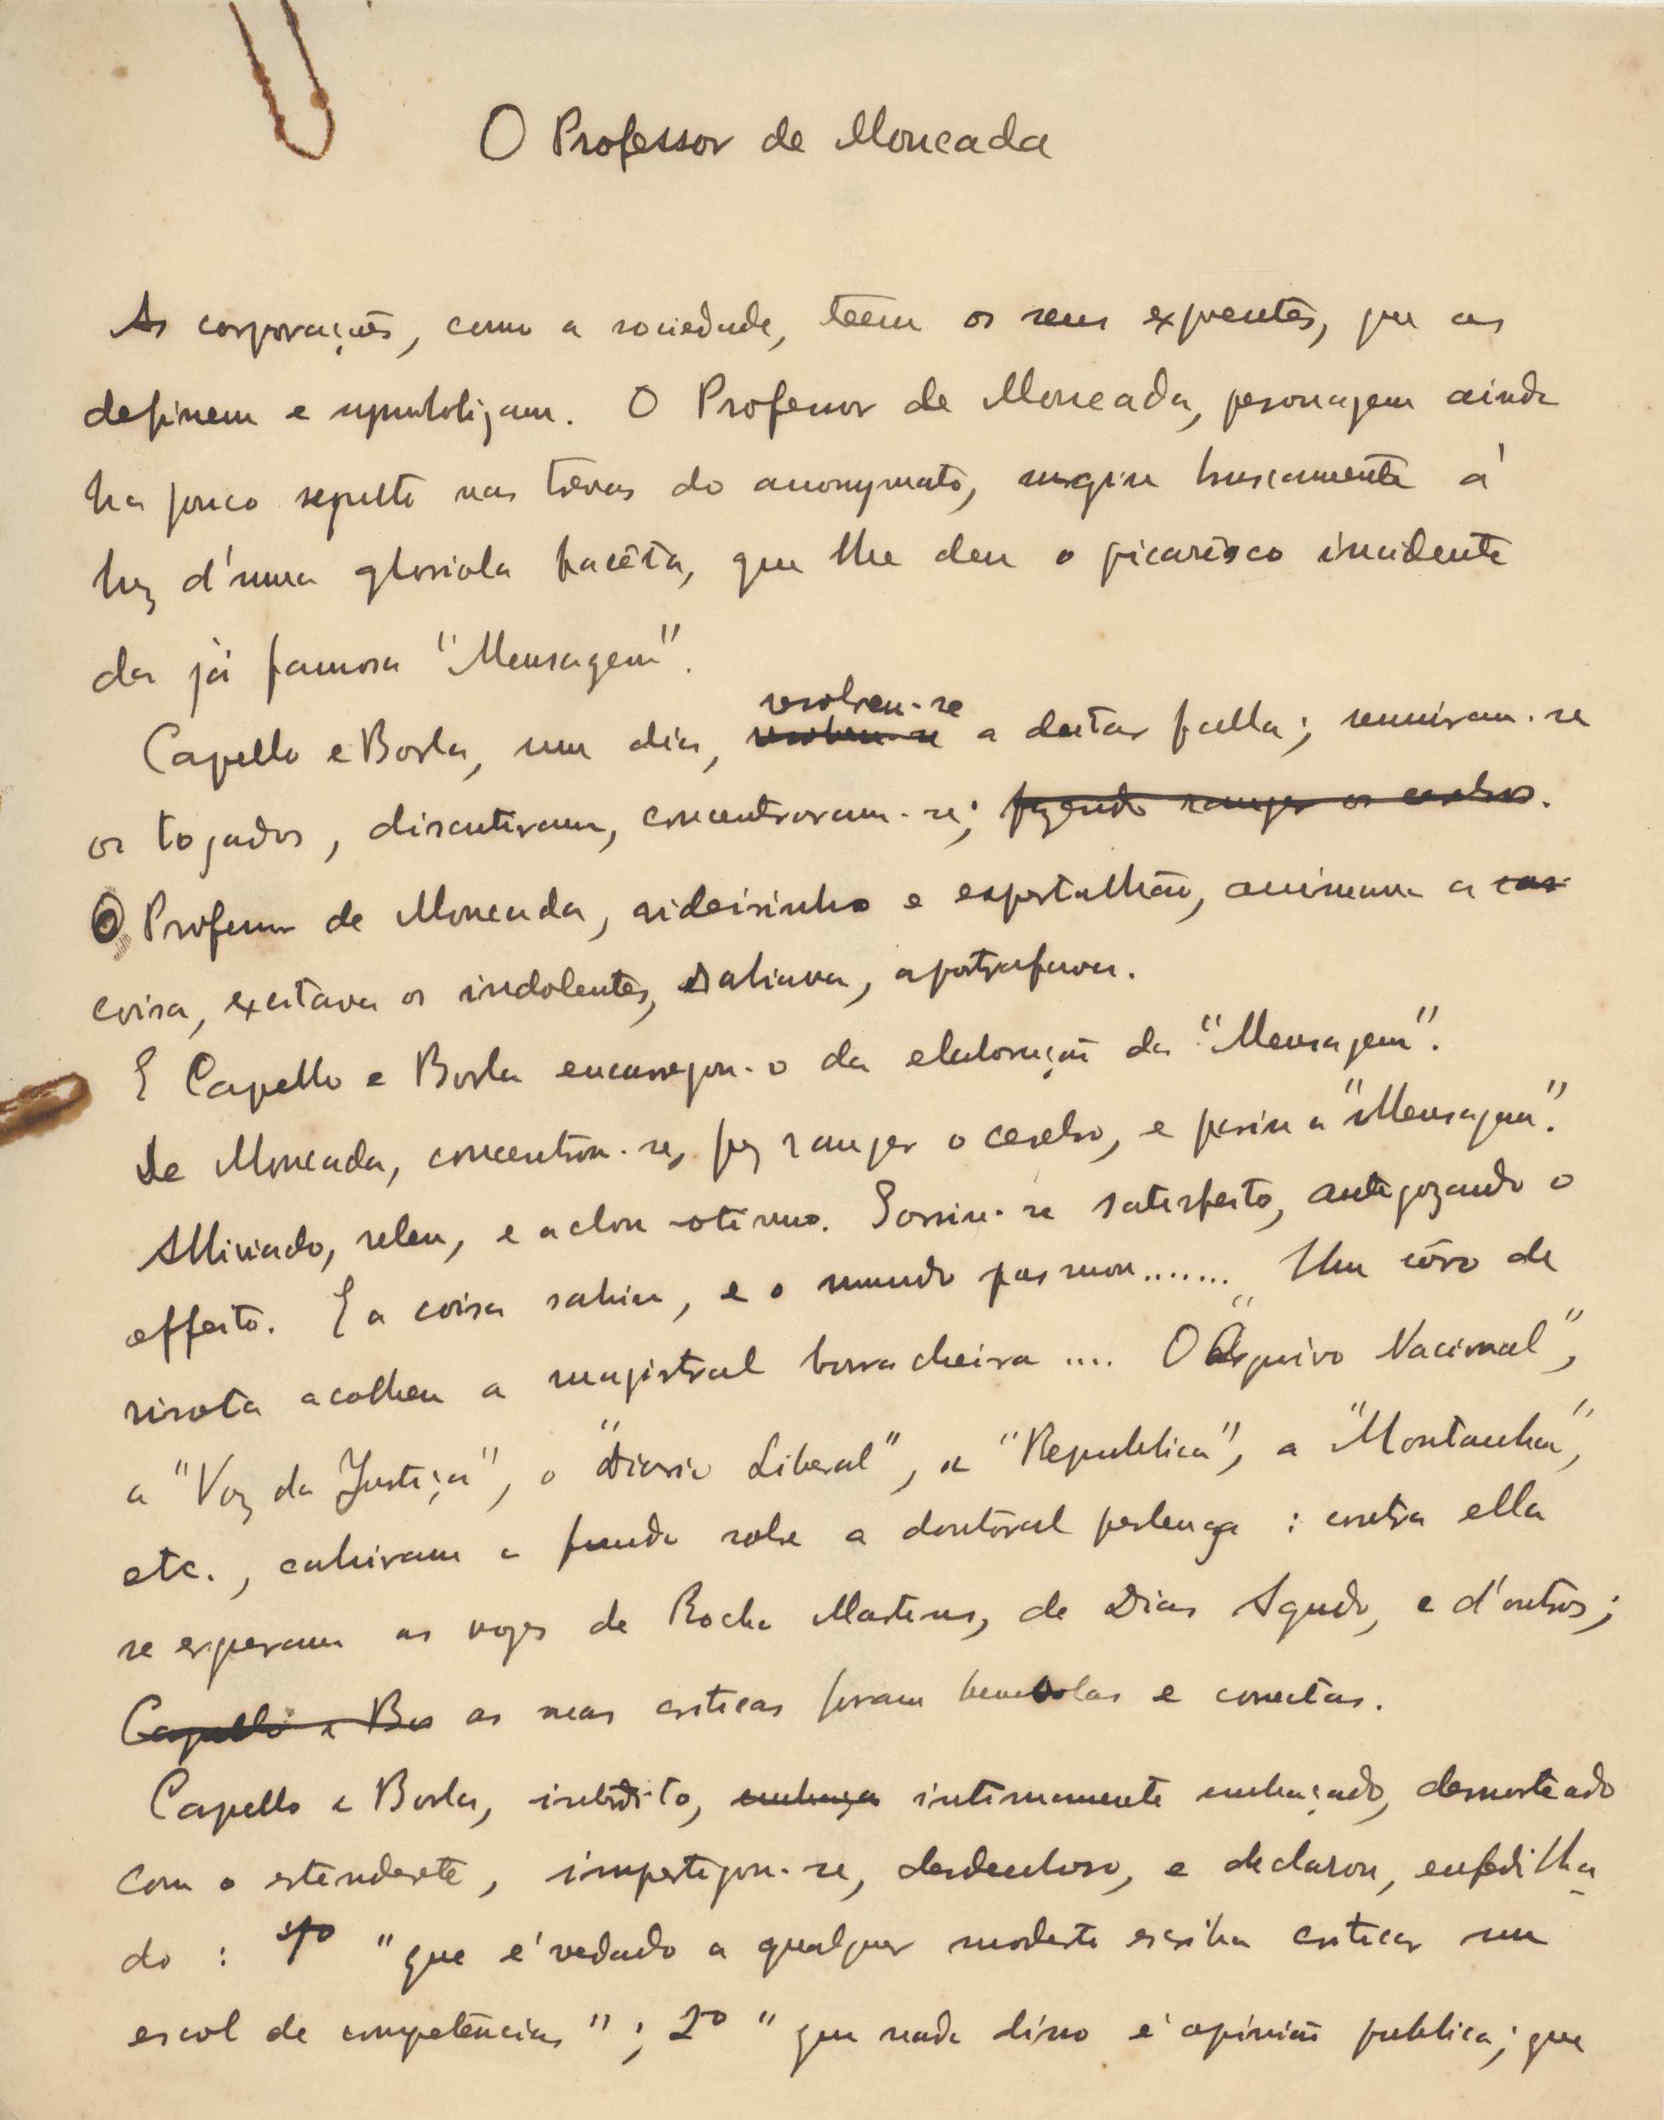 O Professor de Moncada
As corporações, como a sociedade, teem os seus expoentes, que as
definem e symbolizam. O Professor de Moncada, personagem ainda
ha pouco sepulto nas trevas do anonymato, surgiu bruscamente á
luz d'uma gloriola facêta, que lhe deu o picarêsco incidente
da já famosa "Mensagem".
resolveu-se
Capello e Borla, um dia, resolveu-se a deitar falla; reuniram-se
os togados, discutiram, concentraram-se; fazendo ranger os cerebros.
O Professor de Moncada, risinho e espertalhão, animava a coi
coisa, excitava os indolentes, saliava, apostrofava.
E Capello e Borla encarregou-o da elaboração da "Mensagem".
De Moncada, concentrou-se, fez ranger o cerebro, e pariu a "Mensagem".
Alliviado, releu, e achou-o optimo. Sorriu-se satisfeito, antegozando o
effeito. E a coisa sahiu, e o mundo pasmou....... Um côro de
risota acolheu a magistral borracheira .... O "Arquivo Nacional",
a "Voz da Justiça", o "Diario Liberal", a "Republica", a "Montanha",
etc., cahiram a fundo sobre a doutoral perlenga : contra ella
se ergueram as vozes de Rocha Martins, de Dias Agudo, e d'outros;
Capello e Bor as suas criticas foram benevolas e correctas.
Capello e Borla, interdito, embaça intimamente embaçado, desnorteado
com o estenderete, impertigou-se, desdenhoso, e declarou, enfadilha
do : 1º "que é vedado a qualquer modesto escriba criticar um
escol de competências"; 2º "que nada disso é opinião publica; que